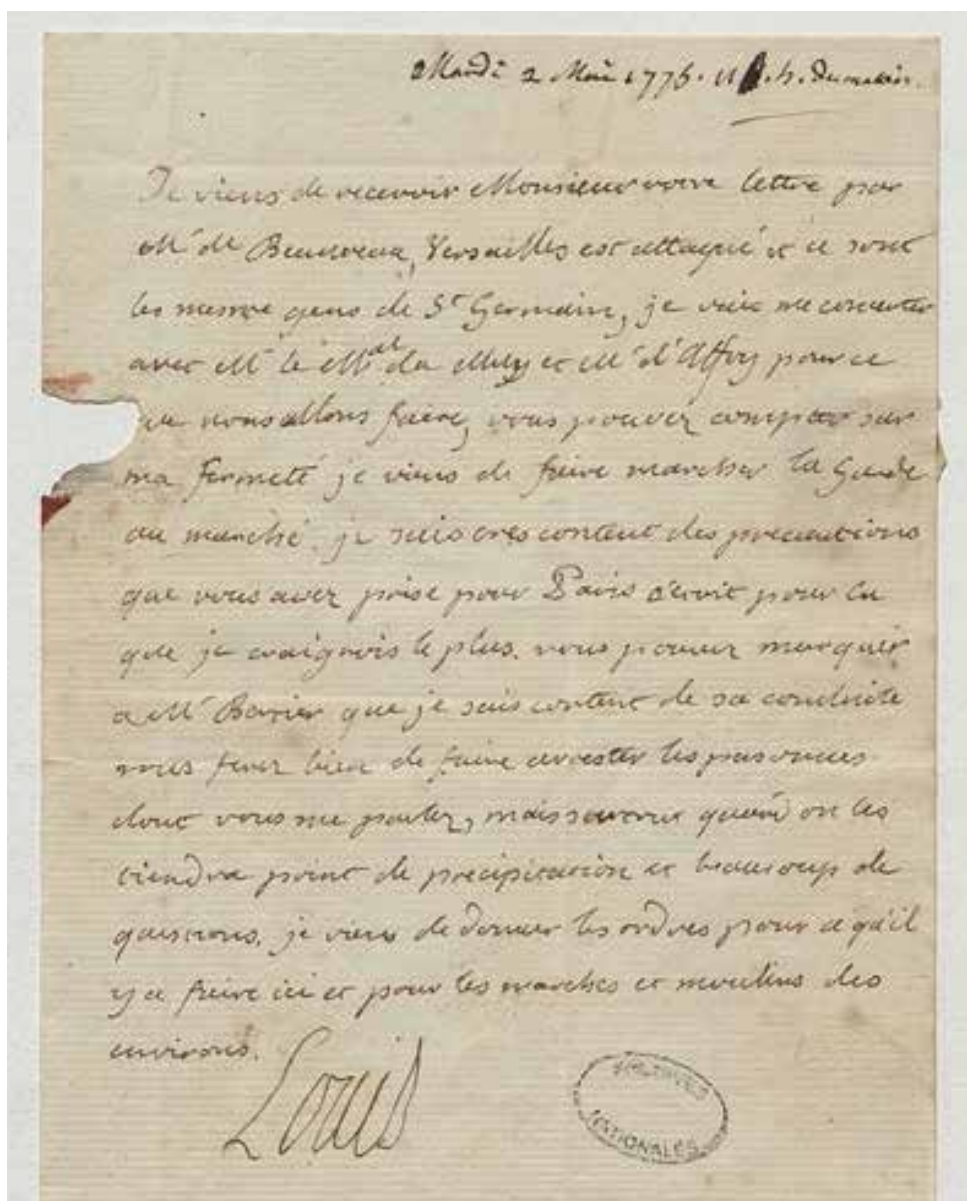 Mardi 2 Mai 1775. 11 h. du matin.
Je viens de recevoir Monsieur votre lettre par
Mr de Beauveau, Versailles est attaqué et ce sont
les mesme gens de St Germain, je vais me concerter
avec Mr le Mal du Muy et Mr d'Affry pour ce
que nous allons faire, vous pouvez compter sur
ma fermeté je viens de faire marcher la Garde
au marché. je suis tres content des precautions
que vous avez prise pour Paris c'etoit pour la
que je craignois le plus. vous pouvez marquer
a Mr Bertier que je suis content de sa conduite
vous ferez bien de faire arrester les personnes
dont vous me parlez, mais surtout quand on les
tiendra point de précipitation et beaucoup de
questions. je viens de donner les ordres pour ce qu'il
y a faire ici et pour les marchés et moulins des
environs.
Louis
ARCHIVES
NATIONALES